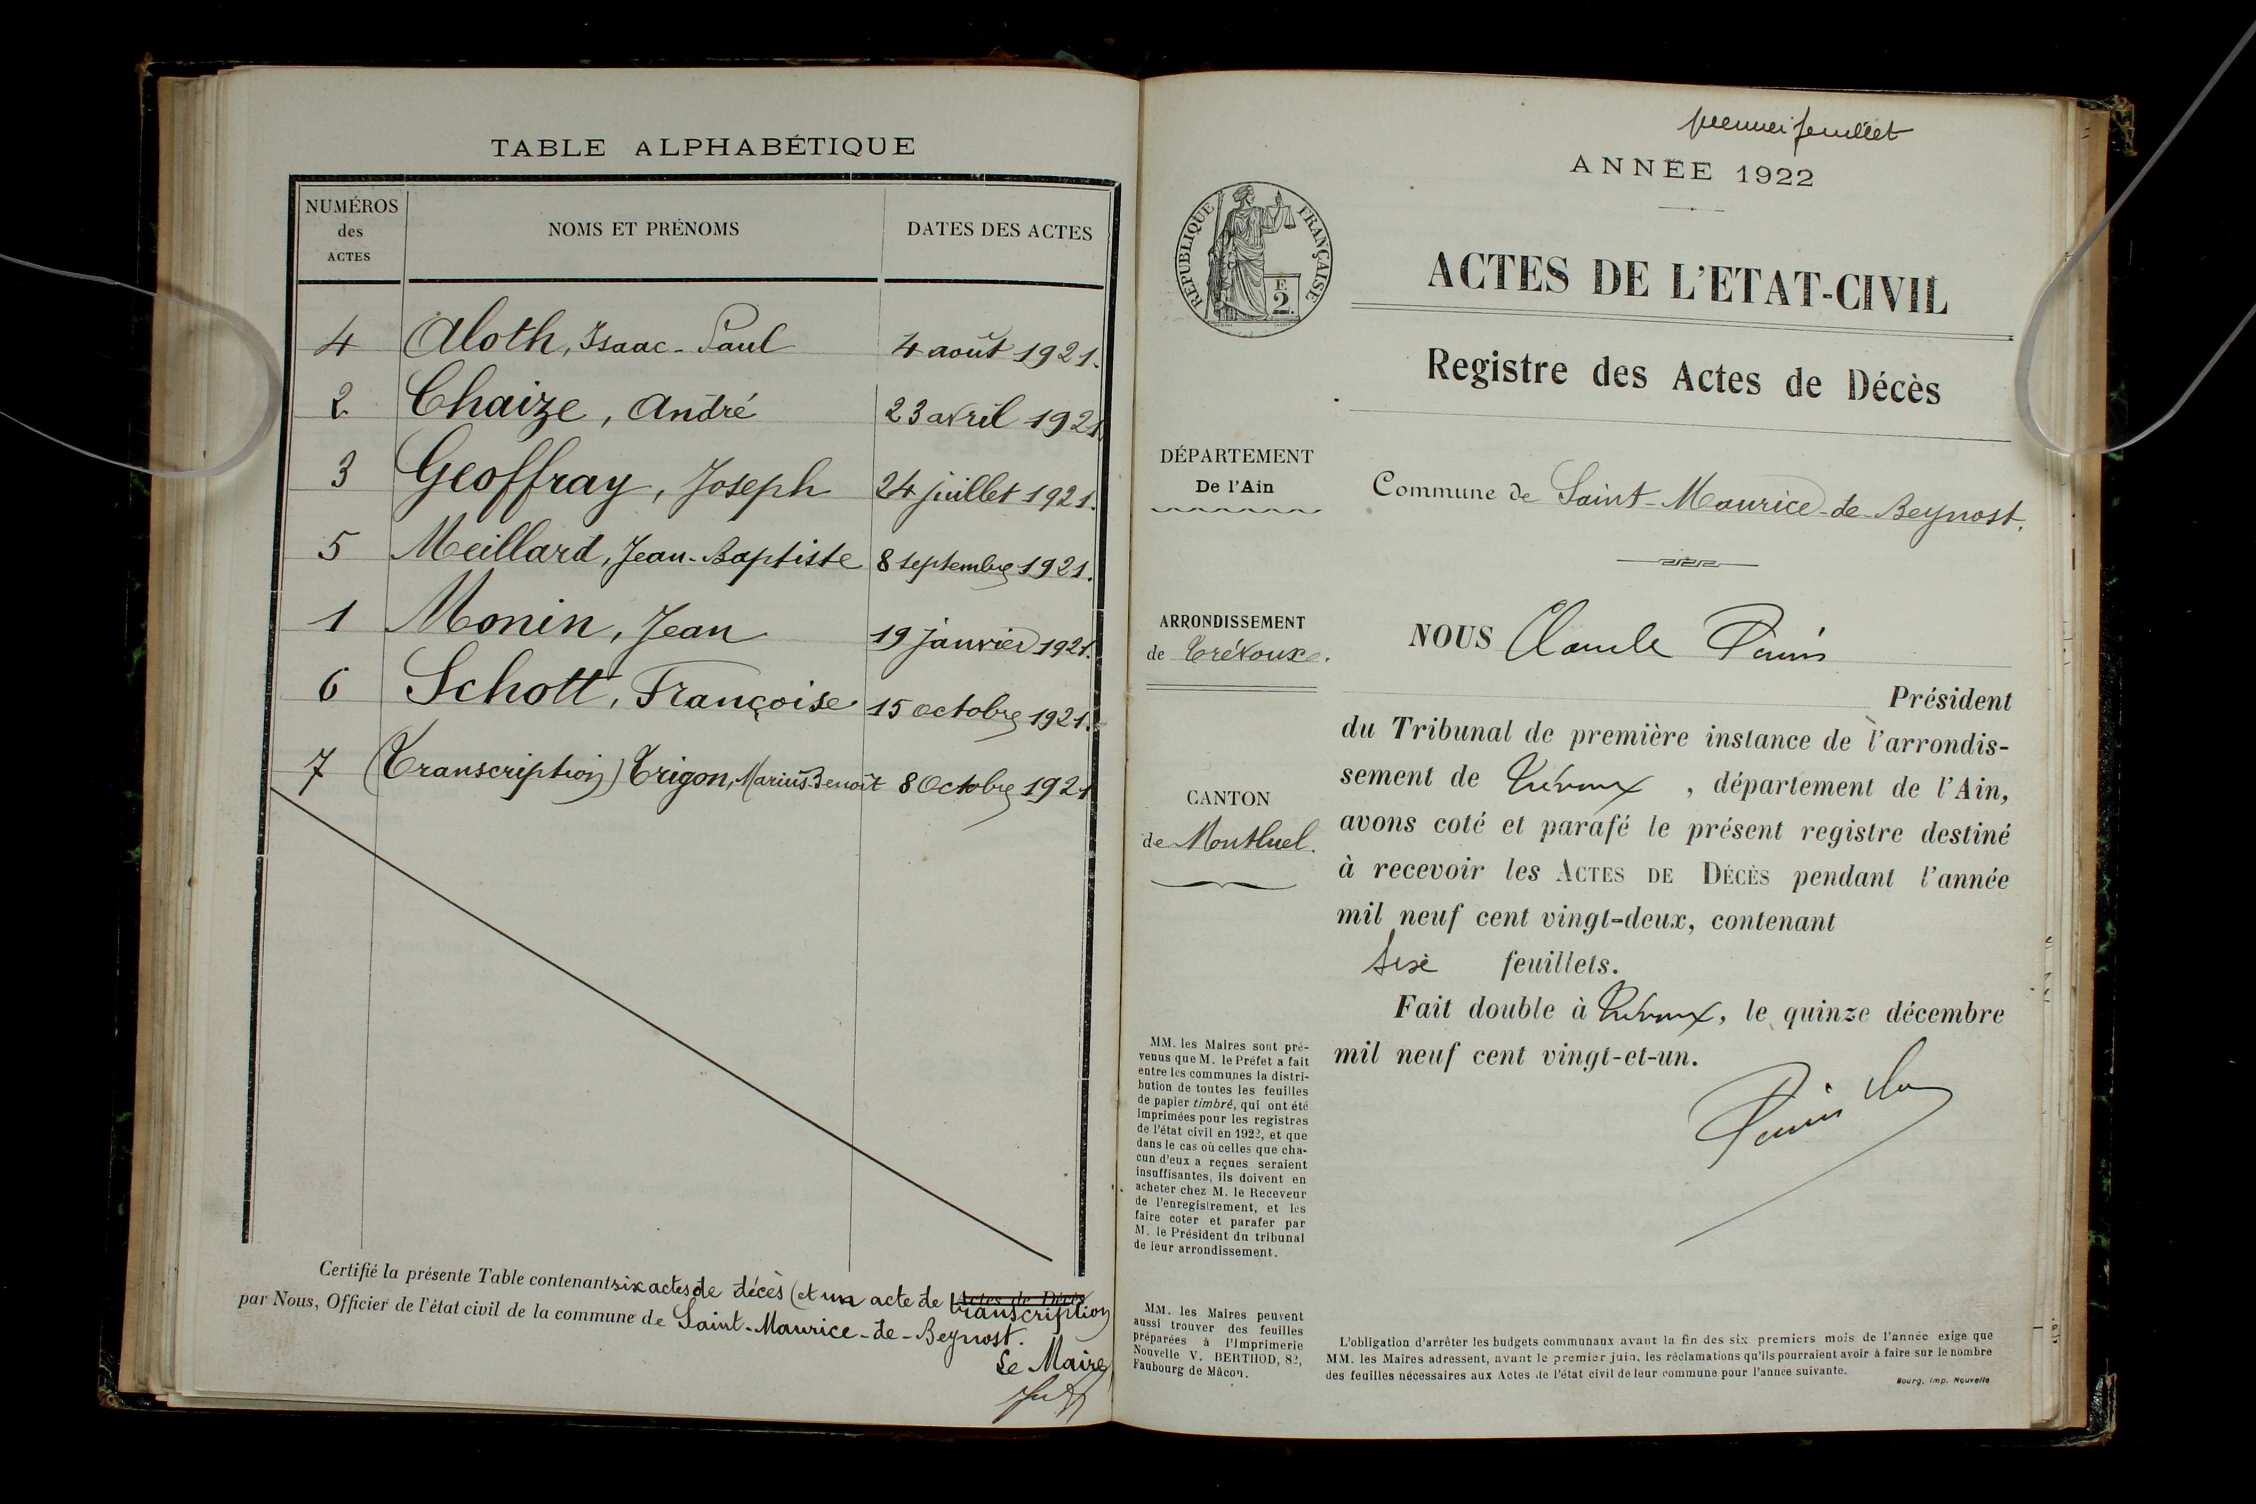 TABLE ALPHABÉTIQUE
NUMÉROS
des
ACTES
NOMS ET PRÉNOMS
DATES DES ACTES
4 Aloth, Isaac-Paul 4 août 1921.
2 Chaize, André 23 avril 1921.
3 Geoffray, Joseph 24 juillet 1921.
5 Meillard, Jean-Baptiste 8 septembre 1921.
1 Monin, Jean 19 janvier 1921.
6 Schott, Françoise 15 octobre 1921.
7 (Transcription) Trigon, Marius-Benoît 8 Octobre 1921
Certifié la présente Table contenant six actes de décès (et un acte de Actes de Décès transcription
par Nous, Officier de l'état civil de la commune de Saint-Maurice-de-Beynost.
Le Maire
premier feuillet
ANNÉE 1922
RÉPUBLIQUE FRANÇAISE
F.
2.
ACTES DE L'ETAT-CIVIL
Registre des Actes de Décès
DÉPARTEMENT
De l'Ain
Commune de Saint-Maurice-de-Beynost.
ARRONDISSEMENT
de Trévoux.
CANTON
de Montluel.
NOUS Claude
Président
du Tribunal de première instance de l'arrondis-
sement de Trévoux, département de l'Ain,
avons coté et parafé le présent registre destiné
à recevoir les ACTES DE DÉCÈS pendant l'année
mil neuf cent vingt-deux, contenant
feuillets.
Fait double à Trévoux, le quinze décembre
mil neuf cent vingt-et-un.
MM. les Maires sont pré-
venus que M. le Préfet a fait
entre les communes la distri-
bution de toutes les feuilles
de papier timbré, qui ont été
imprimées pour les registres
de l'état civil en 1922, et que
dans le cas où celles que cha-
cun d'eux a reçues seraient
insuffisantes, ils doivent en
acheter chez M. le Receveur
de l'enregistrement, et les
faire coter et parafer par
M. le Président du tribunal
de leur arrondissement.
MM. les Maires peuvent
aussi trouver des feuilles
préparées à l'Imprimerie
Nouvelle V. BERTHOD, 82,
Faubourg de Mâcon.
L'obligation d'arrêter les budgets communaux avant la fin des six premiers mois de l'année exige que
MM. les Maires adressent, avant le premier juin, les réclamations qu'ils pourraient avoir à faire sur le nombre
des feuilles nécessaires aux Actes de l'état civil de leur commune pour l'année suivante.
Bourg, Imp. Nouvelle